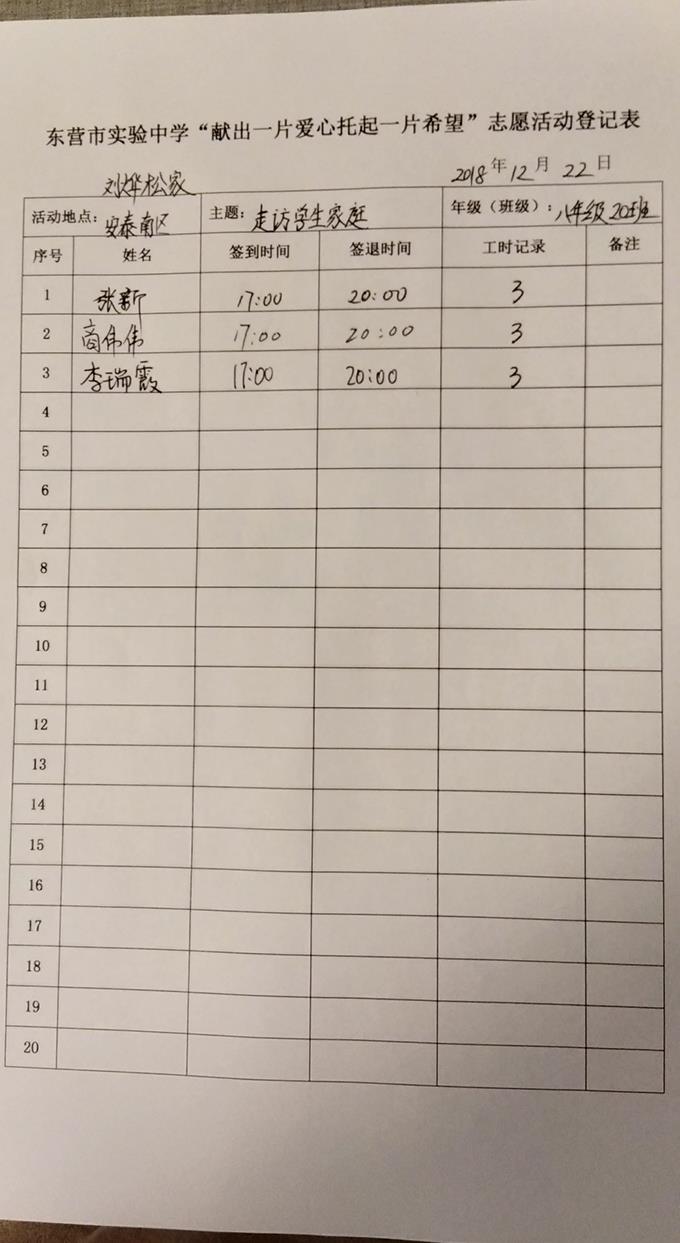 东营市实验中学“献出一片爱心托起一片希望”志愿活动登记表
2018年12月22日
刘烨松家
活动地点：安泰南区 主题：走访学生家庭 年级（班级）：八年级20班
序号 姓名 签到时间 签退时间 工时记录 备注
1 张新 17:00 20:00 3
2 商伟伟 17:00 20:00 3
3 李瑞霞 17:00 20:00 3
4
5
6
7
8
9
10
11
12
13
14
15
16
17
18
19
20